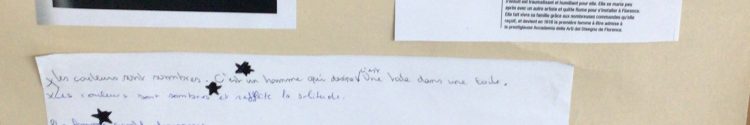 s'ensuit est traumatisant et humiliant pour elle. Elle se marie peu
après avec un autre artiste et quitte Rome pour s'installer à Florence.
Elle fait vivre sa famille grâce aux nombreuses commandes qu'elle
reçoit, et devient en 1616 la première femme à être admise à
la prestigieuse Accademia delle Arti del Disegno de Florence.
Les couleurs sont sombres. C'est un homme qui dessine une toile dans une
Les couleurs sont sombres et reflète la solitude.